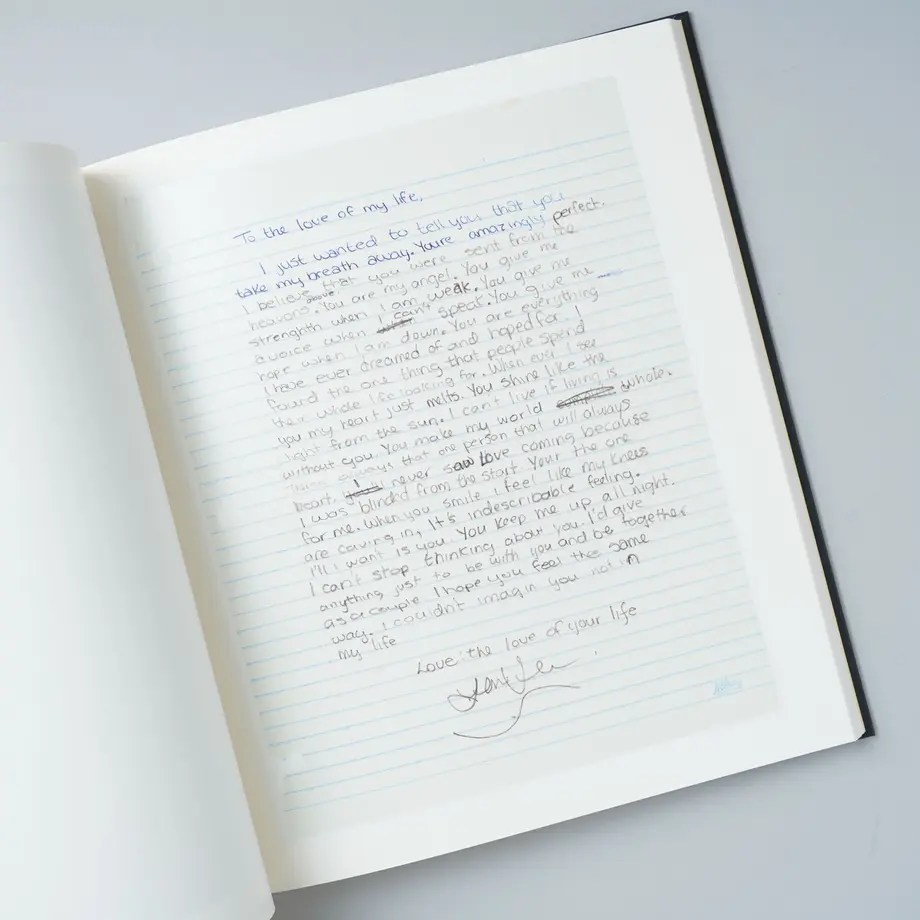 To the love of my life,
I just wanted to tell you that you
take my breath away. Youre amazingly perfect.
I believe that you were sent from the
heavens above. You are my angel. You give me
strenghth when I am weak. You give me
a voice when I can't speak. You give me
hope when I am down. You are everything
I have ever dreamed of and hoped for. I
found the one thing that people spend
their whole life looking for. When ever I see
you my heart just melts. You shine like the
light from the sun. I can't live if living is
without you. You make my world whole.
always that one person that will always
heart. I never saw love coming because
I was blinded from the start Your the one
for me. When you smile i feel like my knees
are caving in, It's indescribable feeling.
I'll I want is you. You keep me up all night.
I can't stop thinking about you. I'd give
anything just to be with you and be together
as a couple I hope you feel the same
way. I couldn't imagin you not in
my life
Love: the love of your life